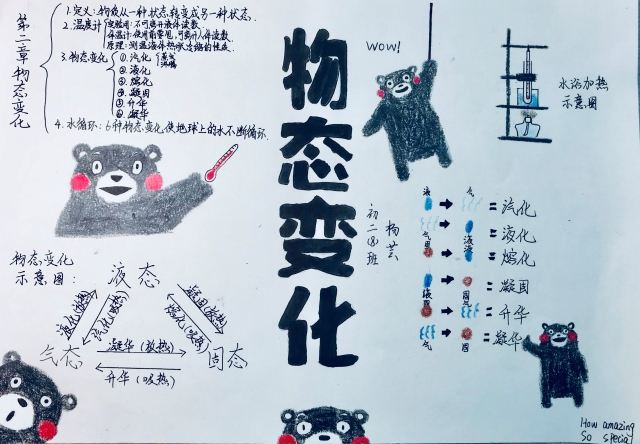 第二章 物态变化
1. 定义:物质从一种状态转变成另一种状态.
2. 温度计
实验用:不可离开液体读数
体温计:使用前要甩,可离开人体读数
原理:测温液体热胀冷缩的性质.
3. 物态变化
① 汽化 蒸发 沸腾
② 液化
③ 熔化
④ 凝固
⑤ 升华
⑥ 凝华
4. 水循环:6种物态变化,使地球上的水不断循环.
物态变化
wow!
水浴加热
示意图
初二(8)班
杨芸
液 气 = 汽化
气 液 = 液化
固 液 = 熔化
液 固 = 凝固
固 气 = 升华
气 固 = 凝华
物态变化
示意图:
液态
气态
固态
液化(放热)
汽化(吸热)
凝固(放热)
熔化(吸热)
凝华(放热)
升华(吸热)
How amazing
So special